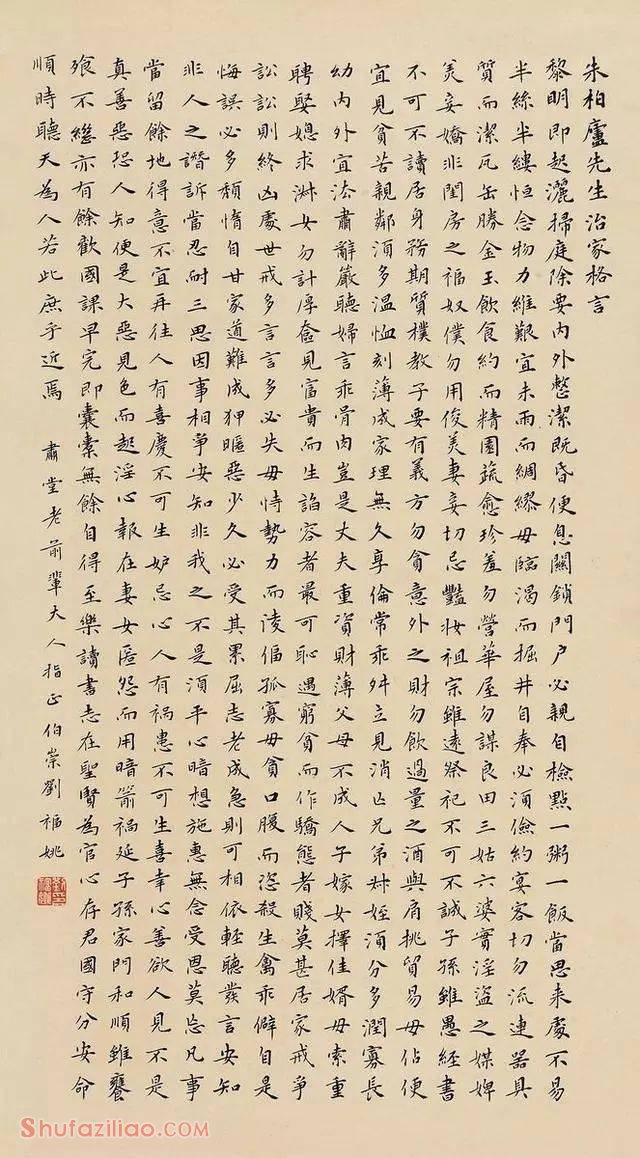 朱柏廬先生治家格言
黎明即起灑掃庭除要內外整潔既昏便息關鎖門户必親自檢點一粥一飯當思来處不易
半絲半縷恒念物力維艱宜未雨而綢繆毋臨渴而掘井自奉必須儉約宴客切勿流連器具
質而潔瓦缶勝金玉飲食約而精園蔬愈珍羞勿營華屋勿謀良田三姑六婆實淫盜之媒婢
美妾嬌非閨房之福奴僕勿用俊美妻妾切忌豔妝祖宗雖遠祭祀不可不誠子孫雖愚經書
不可不讀居身務期質樸教子要有義方勿貪意外之財勿飲過量之酒與肩挑貿易毋佔便
宜見貧苦親鄰須多溫恤刻薄成家理無久享倫常乖舛立見消亡兄弟叔姪須分多潤寡長
幼內外宜法肅辭嚴聽婦言乖骨肉豈是丈夫重資財薄父母不成人子嫁女擇佳婿毋索重
聘娶媳求淑女勿計厚奩見富貴而生諂容者最可恥遇窮貧而作驕態者賤莫甚居家戒爭
訟訟則終凶處世戒多言言多必失毋恃勢力而淩偪孤寡毋貪口腹而恣殺生禽乖僻自是
悔誤必多頹惰自甘家道難成狎暱惡少久必受其累屈志老成急則可相依輕聽發言安知
非人之譖訴當忍耐三思因事相爭安知非我之不是須平心暗想施惠無念受恩莫忘凡事
當留餘地得意不宜再往人有喜慶不可生妒忌心人有禍患不可生喜幸心善欲人見不是
真善惡恐人知便是大惡見色而起淫心報在妻女匿怨而用暗箭禍延子孫家門和順雖饔
飧不繼亦有餘歡國課早完即囊橐無餘自得至樂讀書志在聖賢為官心存君國守分安命
順時聽天為人若此庶乎近焉 肅堂老前輩大人指正伯崇劉福姚
Shufaziliao.com